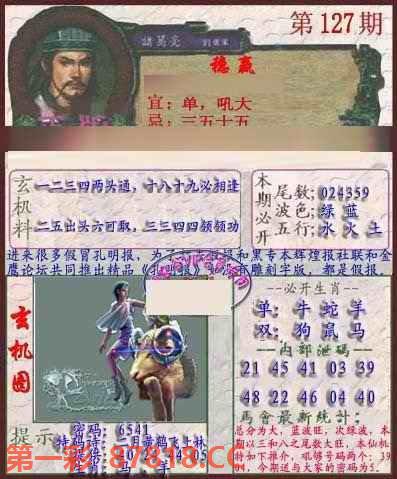 第127期
諸葛亮 劉備軍
稳赢
宜：单，吼大
忌：三五十五
玄机料
一二三四两头通，十八十九必相逢
二五出头六可取，三三四四领领功
本期必开
尾数：024359
波色：绿 蓝
五行：水 火 土
进来很多假冒孔明报，为了
报和黑专本辉煌报社联和金
鹰论坛共同推出精品《孔明报》
没有雕刻字版，都是假报。
玄机图
必开生肖
单：牛 蛇 羊
双：狗 鼠 马
内部泄码
21 45 41 03 39
48 22 46 04 40
馬會最新統計：
总分为大，蓝波旺，次绿波，本
期以三和八之尾数大旺，本仙机
特如下推介，吼够号码两个：39
码，今期造与大家的密码为5.
提示
密码：6541
特码诗：二月黄鹤飞上林
第一彩 87818.CC